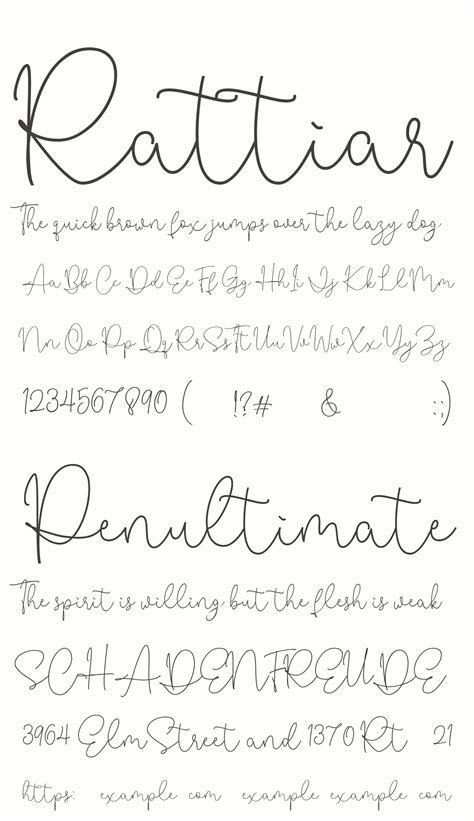 Rattiar
The quick brown fox jumps over the lazy dog
Aa Bb Cc Dd Ee Ff Gg Hh Ii Jj Kk Ll Mm
Nn Oo Pp Qq Rr Ss Tt Uu Vv Ww Xx Yy Zz
1234567890 ( !?# & :;)
Penultimate
The spirit is willing but the flesh is weak
SCHADENFREUDE
3964 Elm Street and 1370 Rt 21
https: example com example example com